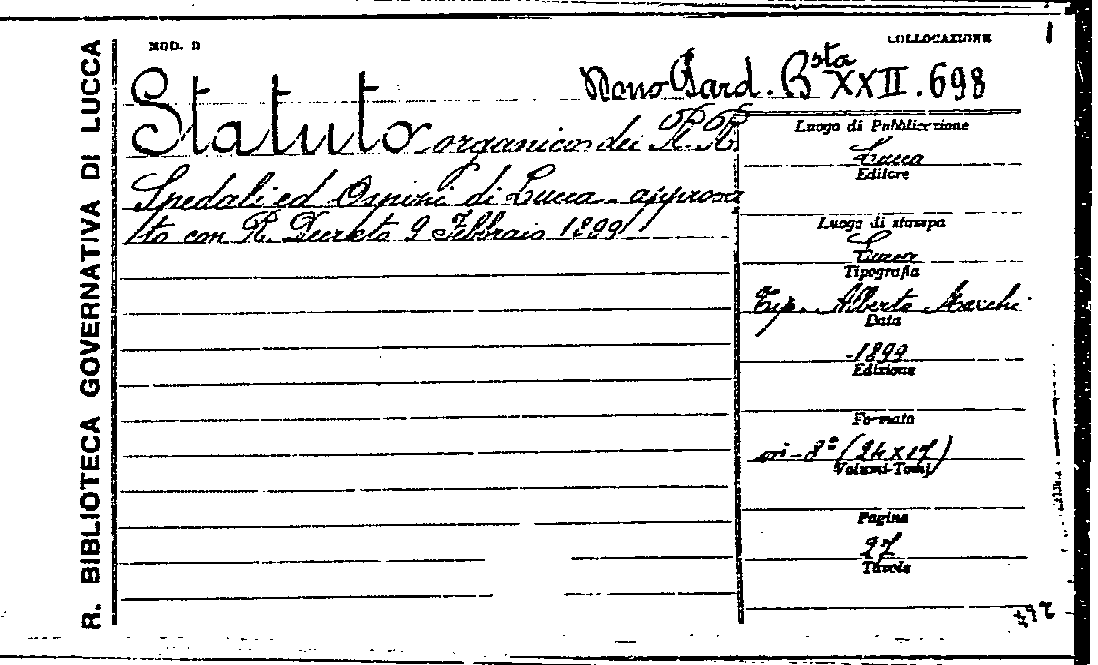 R. BIBLIOTECA GOVERNATIVA DI LUCCA
MOD. D
COLLOCAZIONE
1
Bsta XXII. 698
Statuto organico dei R.R.
Spedali ed Ospizi di Lucca - approva
to con R. Decreto 9 Febbraio 1899
Luogo di Pubblicazione
Lucca
Editore
Luogo di stampa
Lucca
Tipografia
Tip. Alberto Marchi
Data
1899
Edizione
Formato
in-8º (24x17)
Volumi-Tomi
Pagine
27
Tavole